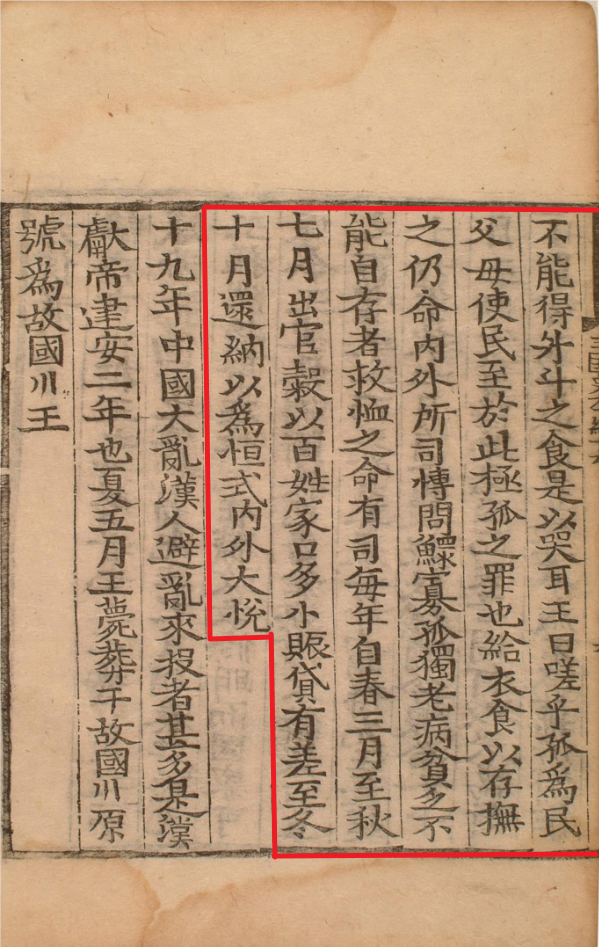 不能得外斗之食是以哭耳王曰嗟乎孤爲民
父母使民至於此極孤之罪也給衣食以存撫
之仍命內外所司愽問鰥寡孤獨老病貧乏不
能自存者救恤之命有司每年自春三月至秋
七月出官穀以百姓家口多小賑貸有差至冬
十月還納以爲恒式內外大悅
十九年中國大亂漢人避亂來投者甚多是漢
獻帝建安二年也夏五月王薨葬于故國川原
號爲故國川王